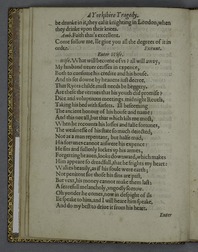 A Yorkshire Tragedy.
be drunke in it, they cal it knighting in London, when
they drinke upon their knees.
Amb. Faith that's excellent.
Come follow me, Ile giue you all the degrees of it in
order. Exeunt.
Enter Wife.
wife. What will become of vs? all will away,
My husband neuer ceases in expence,
Both to consume his credite and his house.
And tis set downe by heauens iust decree,
That Ryots childe must needs be beggery.
Are these the vertues that his youth did promise?
Dice and voluptuous meetings, midnight Reuels,
Taking his bed with surfets. Ill beseeming
The ancient honour of his house and name:
And this not all, but that which kils me most,
When he recounts his losses and false fortunes,
The weaknesse of his state so much deiected,
Not as a man repentant, but halfe mad,
His fortunes cannot answere his expence:
He sits and sullenly lockes vp his armes,
Forgetting heauen, lookes downward, which makes
Him appeare so dreadfull, that he frights my heart:
Walks heauily, as if his soule were earth:
Not penitent for those his sins are past,
But vext, his money cannot make them last:
A fearefull melancholy, vngodly sorrow.
Oh yonder he comes, now in despight of ils
Ile speake to him, and I will heare him speake,
And do my best to driue it from his heart.
Enter